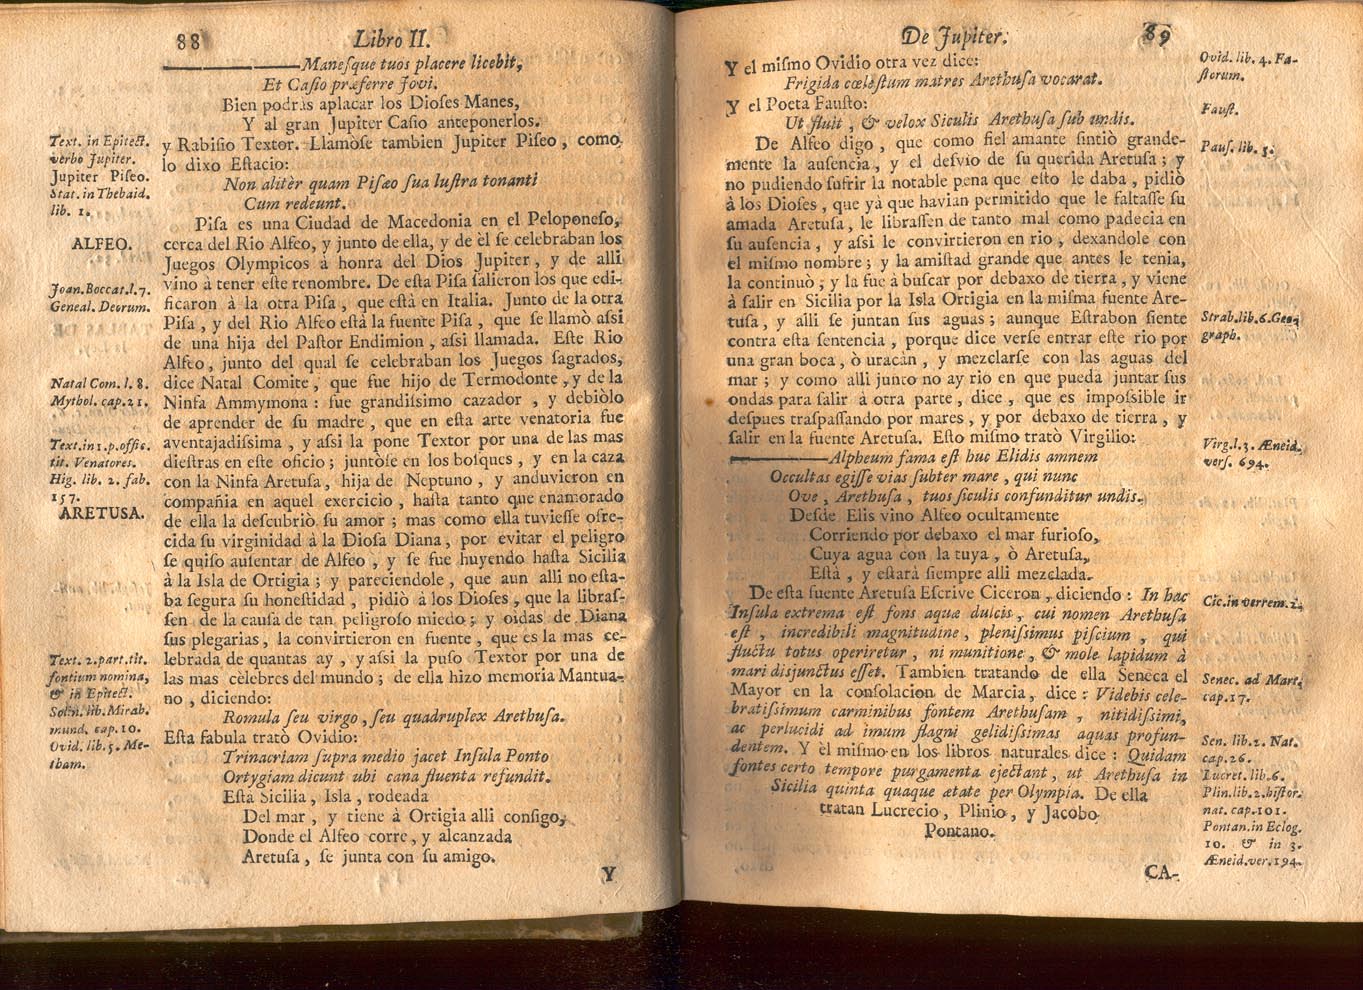 88
Libro II.
Manesque tuos placere licebit,
Et Casio præferre Jovi.
Bien podràs aplacar los Dioses Manes,
Y al gran Jupiter Casio anteponerlos.
y Rabisio Textor. Llamòse tambien Jupiter Piseo, como
lo dixo Estacio:
Non alitèr quam Pisæo sua lustra tonanti
Cum redeunt.
Pisa es una Ciudad de Macedonia en el Peloponeso,
cerca del Rio Alfeo, y junto de ella, y de èl se celebraban los
Juegos Olympicos à honra del Dios Jupiter, y de alli
vino à tener este renombre. De esta Pisa salieron los que edi-
ficaron à la otra Pisa, que està en Italia. Junto de la otra
Pisa, y del Rio Alfeo està la fuente Pisa, que se llamò assi
de una hija del Pastor Endimion, assi llamada. Este Rio
Alfeo, junto del qual se celebraban los Juegos sagrados,
dice Natal Comite, que fue hijo de Termodonte, y de la
Ninfa Ammymona: fue grandissimo cazador, y debiòlo
de aprender de su madre, que en esta arte venatoria fue
aventajadissima, y assi la pone Textor por una de las mas
diestras en este oficio; juntòse en los bosques, y en la caza
con la Ninfa Aretusa, hija de Neptuno, y anduvieron en
compañia en aquel exercicio, hasta tanto que enamorado
de ella la descubriò su amor; mas como ella tuviesse ofre-
cida su virginidad à la Diosa Diana, por evitar el peligro
se quiso ausentar de Alfeo, y se fue huyendo hasta Sicilia
à la Isla de Ortigia; y pareciendole, que aun alli no esta-
ba segura su honestidad, pidiò à los Dioses, que la libras-
sen de la causa de tan peligroso miedo; y oidas de Diana
sus plegarias, la convirtieron en fuente, que es la mas ce-
lebrada de quantas ay, y assi la puso Textòr por una de
las mas cèlebres del mundo; de ella hizo memoria Mantua-
no, diciendo:
Romula seu virgo, seu quadruplex Arethusa.
Esta fabula tratò Ovidio:
Trinacriam supra medio jacet Insula Ponto
Ortygiam dicunt ubi cana fluenta refundit.
Està Sicilia, Isla, rodeada
Del mar, y tiene à Ortigia alli consigo,
Donde el Alfeo corre, y alcanzada
Aretusa, se junta con su amigo.
Y
Text. in Epitect.
verbo Jupiter.
Jupiter Piseo.
Stat. in Thebaid.
lib. 1.
ALFEO.
Joan. Boccat. l. 7.
Geneal. Deorum.
Natal Com. l. 8.
Mythol. cap. 21.
Text. in 1. p. offic.
tit. Venatores.
Hig. lib. 2. fab.
157.
ARETUSA.
Text. 2. part. tit.
fontium nomina,
& in Epitect.
Solin. lib. Mirab.
mund. cap. 10.
Ovid. lib. 5. Me-
tham.
De Jupiter.
89
Y el mismo Ovidio otra vez dice:
Frigida cœlestum matres Arethusa vocarat.
Y el Poeta Fausto:
Ut fluit, & velox Siculis Arethusa sub undis.
De Alfeo digo, que como fiel amante sintiò grande-
mente la ausencia, y el desvio de su querida Aretusa; y
no pudiendo sufrir la notable pena que esto le daba, pidiò
à los Dioses, que yà que havian permitido que le faltasse su
amada Aretusa, le librassen de tanto mal como padecia en
su ausencia, y assi le convirtieron en rio, dexandole con
el mismo nombre; y la amistad grande que antes le tenia,
la continuò; y la fue à buscar por debaxo de tierra, y viene
à salir en Sicilia por la Isla Ortigia en la misma fuente Are-
tusa, y alli se juntan sus aguas; aunque Estrabon siente
contra esta sentencia, porque dice verse entrar este rio por
una gran boca, ò uracàn, y mezclarse con las aguas del
mar; y como alli junto no ay rio en que pueda juntar sus
ondas para salir à otra parte, dice, que es impossible ir
despues traspassando por mares, y por debaxo de tierra, y
salir en la fuente Aretusa. Esto mismo tratò Virgilio:
Alpheum fama est huc Elidis amnem
Occultas egisse vias subter mare, qui nunc
Ove, Arethusa, tuos siculis confunditur undis.
Desde Elis vino Alfeo ocultamente
Corriendo por debaxo el mar furioso,
Cuya agua con la tuya, ò Aretusa,
Està, y estarà siempre alli mezclada.
De esta fuente Aretusa Escrive Ciceron, diciendo: In hac
Insula extrema est fons aquæ dulcis, cui nomen Arethusa
est, incredibili magnitudine, plenissimus piscium, qui
fluctu totus operiretur, ni munitione, & mole lapidum à
mari disjunctus esset. Tambien tratando de ella Seneca el
Mayor en la consolacion de Marcia, dice: Videbis cele-
bratissimum carminibus fontem Arethusam, nitidissimi,
ac perlucidi ad imum stagni gelidissimas aquas profun-
dentem. Y èl mismo en los libros naturales dice: Quidam
fontes certo tempore purgamenta ejectant, ut Arethusa in
Sicilia quinta quaque ætate per Olympia. De ella
tratan Lucrecio, Plinio, y Jacobo
Pontano.
CA-
Ovid. lib. 4. Fa-
storum.
Faust.
Paus. lib. 5.
Strab. lib. 6. Geog
graph.
Virg. l. 3. Æneid.
vers. 694.
Cic. in verrem. 2.
Senec. ad Mart.
cap. 17.
Sen. lib. 2. Nat.
cap. 26.
Lucret. lib. 6.
Plin. lib. 2. histor.
nat. cap. 101.
Pontan. in Eclog.
10. & in 3.
Æneid. ver. 194.